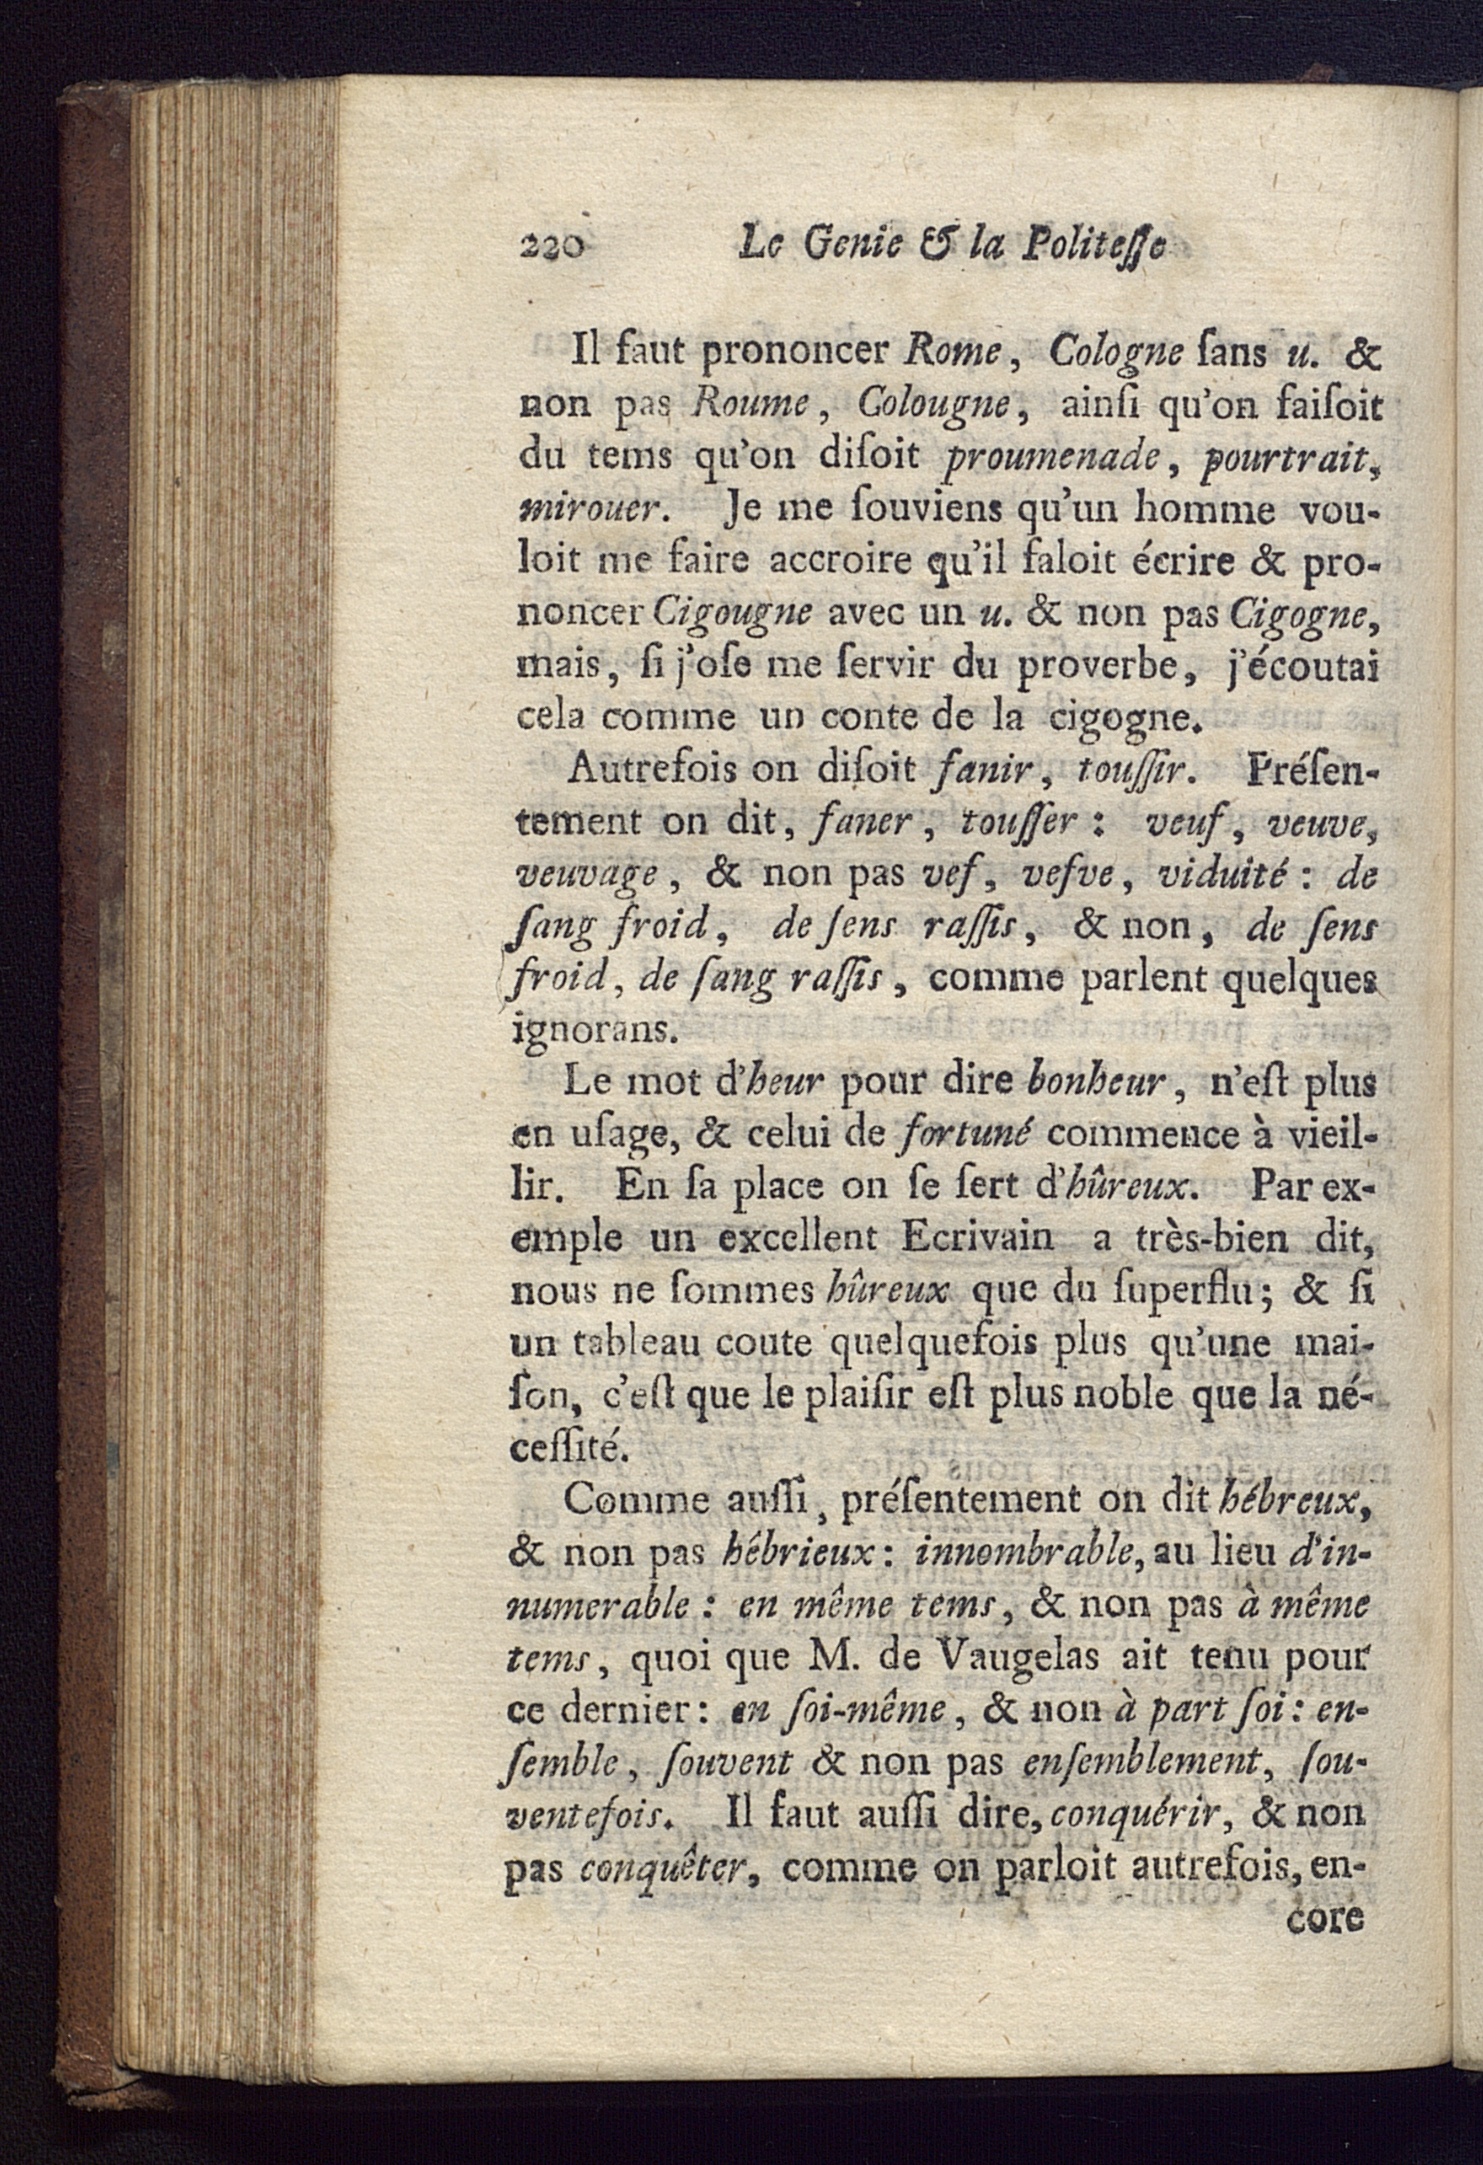 220 Le Genie & la Politeſſe
Il faut prononcer Rome, Cologne ſans u. &
non pas Roume, Colougne, ainſi qu'on faiſoit
du tems qu'on diſoit proumenade, pourtrait,
mirouer. Je me ſouviens qu'un homme vou-
loit me faire accroire qu'il faloit écrire & pro-
noncer Cigougne avec un u. & non pas Cigogne,
mais, ſi j'oſe me ſervir du proverbe, j'écoutai
cela comme un conte de la cigogne.
Autrefois on diſoit fanir, touſſir. Préſen-
tement on dit, faner, touſſer : veuf, veuve,
veuvage, & non pas vef, vefve, viduité : de
ſang froid, de ſens raſſis, & non, de ſens
froid, de ſang raſſis, comme parlent quelques
ignorans.
Le mot d'heur pour dire bonheur, n'eſt plus
en uſage, & celui de fortuné commence à vieil-
lir. En ſa place on ſe ſert d'hûreux. Par ex-
emple un excellent Ecrivain a très-bien dit,
nous ne ſommes hûreux que du ſuperflu; & ſi
un tableau coute quelquefois plus qu'une mai-
ſon, c'eſt que le plaiſir eſt plus noble que la né-
ceſſité.
Comme auſſi, préſentement on dit hébreux,
& non pas hébrieux : innombrable, au lieu d'in-
numerable : en même tems, & non pas à même
tems, quoi que M. de Vaugelas ait tenu pour
ce dernier : en ſoi-même, & non à part ſoi : en-
ſemble, ſouvent & non pas enſemblement, ſou-
ventefois. Il faut auſſi dire, conquérir, & non
pas conquêter, comme on parloit autrefois, en-
core